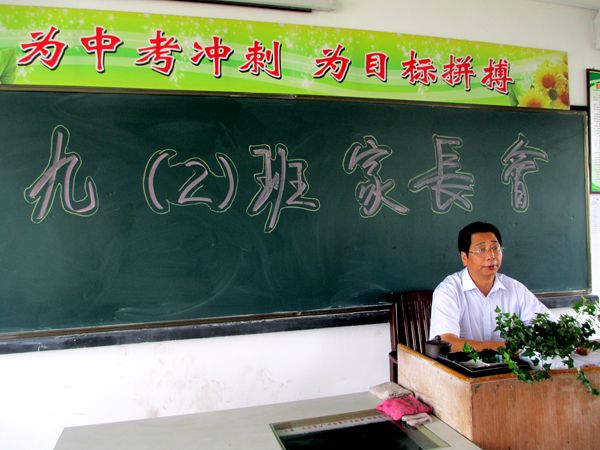 为中考冲刺 为目标拼搏
九(2)班家長會